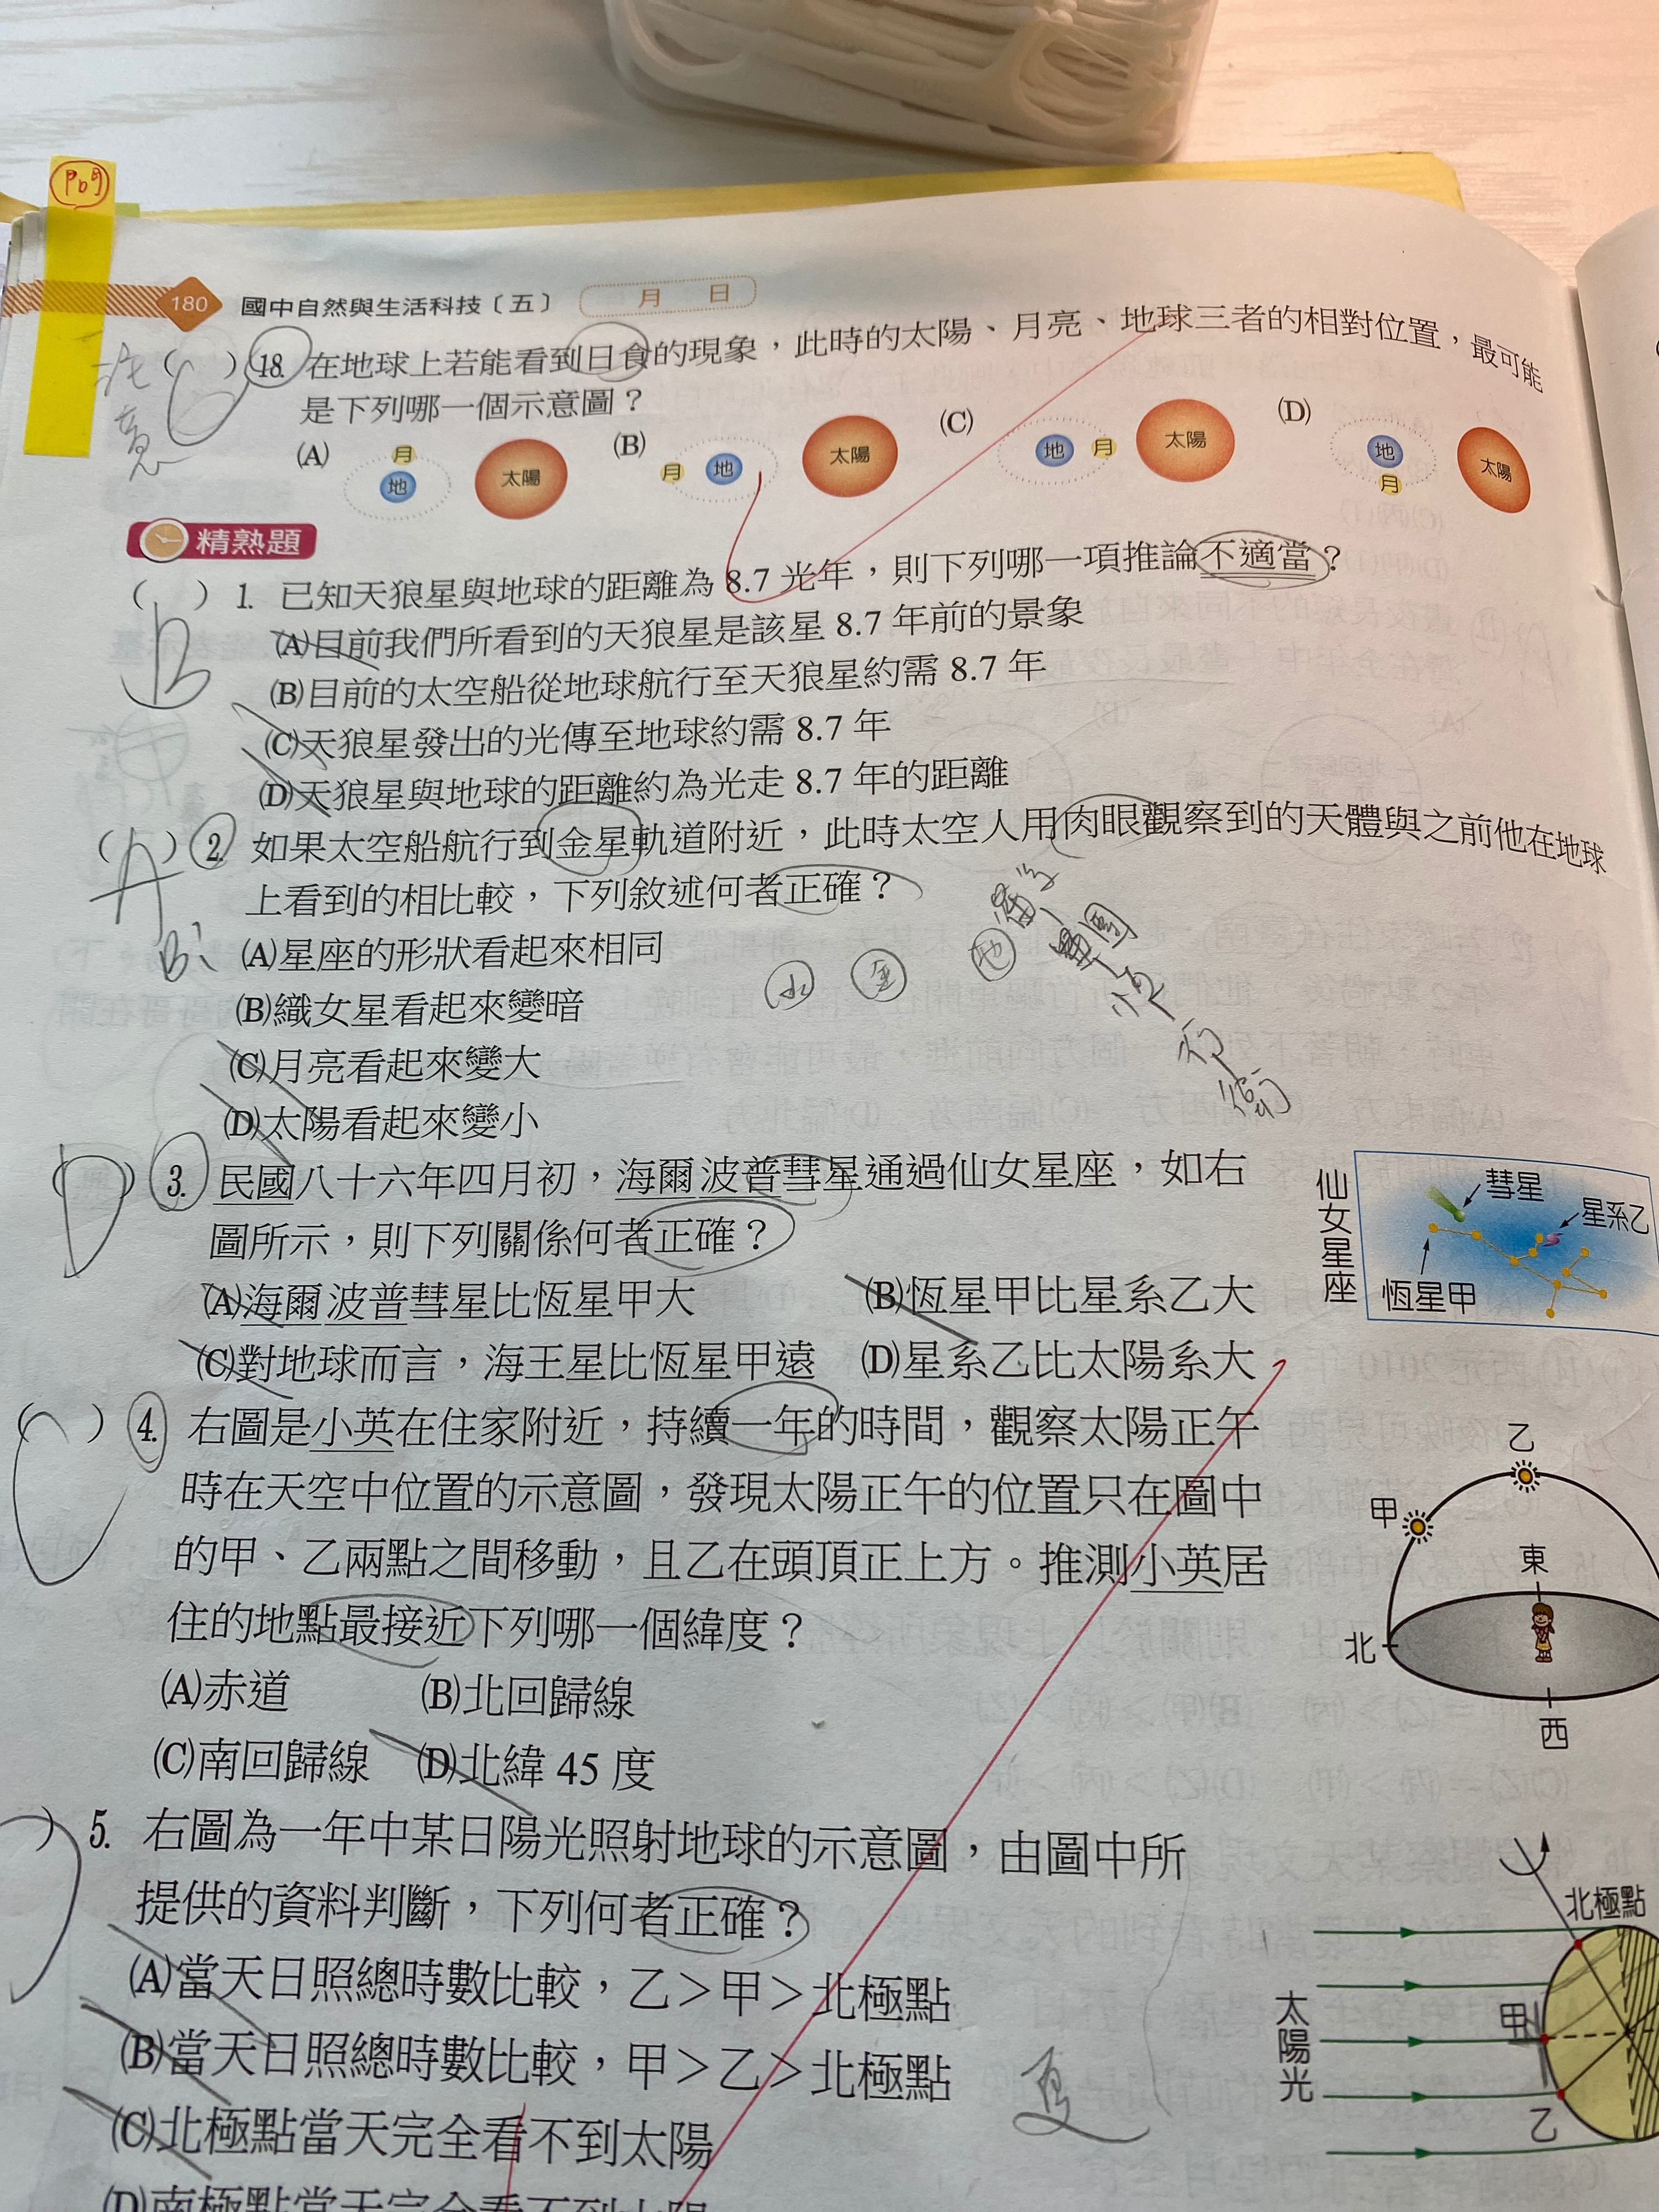 P69
180 國中自然與生活科技〔五〕 月 日
注意
( ) 18. 在地球上若能看到日食的現象，此時的太陽、月亮、地球三者的相對位置，最可能
C
是下列哪一個示意圖？
(A) 月 地 太陽 (B) 月 地 太陽 (C) 地 月 太陽 (D) 地 月 太陽
精熟題
( ) 1. 已知天狼星與地球的距離為 8.7 光年，則下列哪一項推論不適當？
B
(A)目前我們所看到的天狼星是該星 8.7 年前的景象
(B)目前的太空船從地球航行至天狼星約需 8.7 年
(C)天狼星發出的光傳至地球約需 8.7 年
(D)天狼星與地球的距離約為光走 8.7 年的距離
(A) 2. 如果太空船航行到金星軌道附近，此時太空人用肉眼觀察到的天體與之前他在地球
上看到的相比較，下列敘述何者正確？
(A)星座的形狀看起來相同
水 金 地
(B)織女星看起來變暗
(C)月亮看起來變大
(D)太陽看起來變小
(D) 3. 民國八十六年四月初，海爾波普彗星通過仙女星座，如右
圖所示，則下列關係何者正確？
(A)海爾波普彗星比恆星甲大 (B)恆星甲比星系乙大
(C)對地球而言，海王星比恆星甲遠 (D)星系乙比太陽系大
仙女星座
彗星
星系乙
恆星甲
( ) 4. 右圖是小英在住家附近，持續一年的時間，觀察太陽正午
C
時在天空中位置的示意圖，發現太陽正午的位置只在圖中
的甲、乙兩點之間移動，且乙在頭頂正上方。推測小英居
住的地點最接近下列哪一個緯度？
(A)赤道 (B)北回歸線
(C)南回歸線 (D)北緯 45 度
乙
甲
東
北
西
) 5. 右圖為一年中某日陽光照射地球的示意圖，由圖中所
提供的資料判斷，下列何者正確？
(A)當天日照總時數比較，乙＞甲＞北極點
(B)當天日照總時數比較，甲＞乙＞北極點
(C)北極點當天完全看不到太陽
(D)南極點當天完全看不到太陽
夏
北極點
太陽光
甲
乙